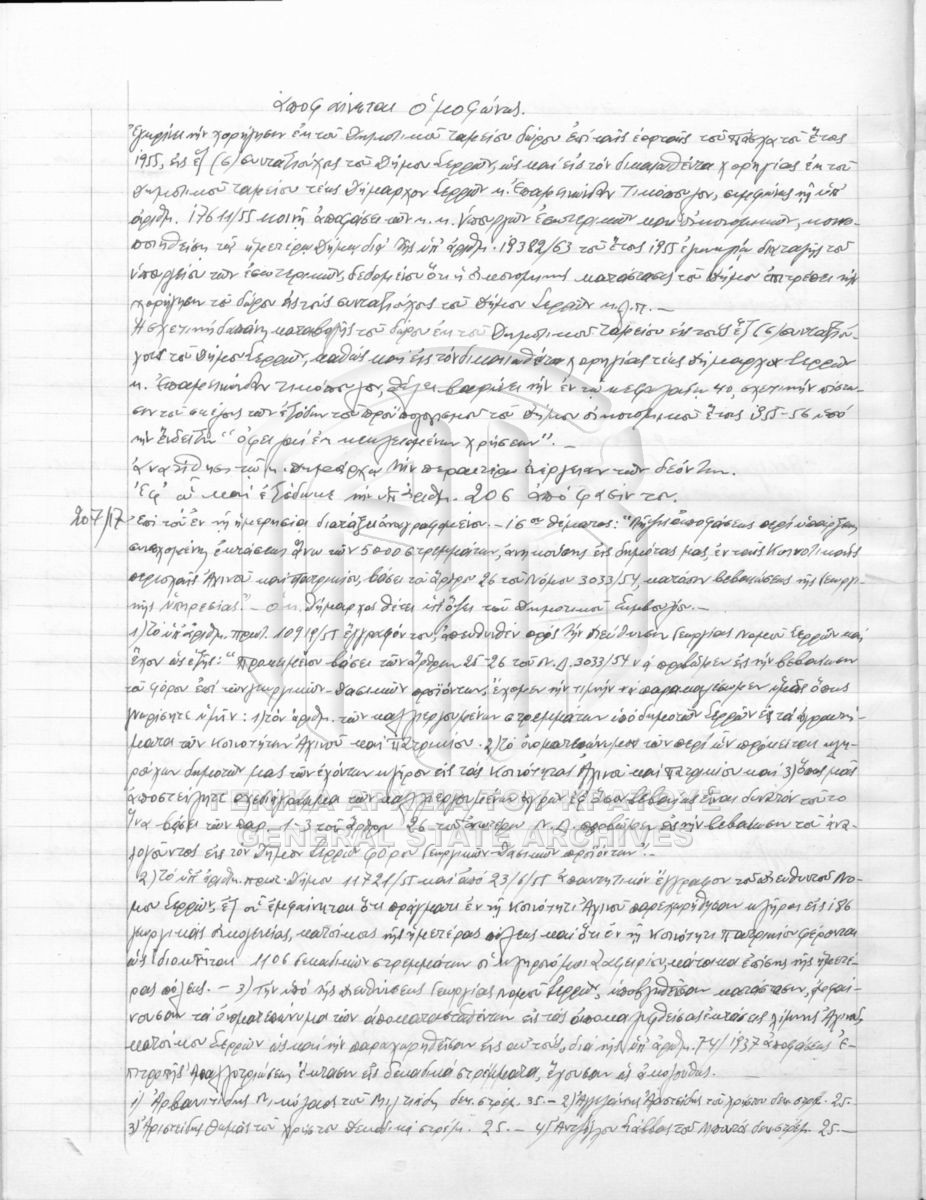 Ἀποφαίνεται Ὁμοφώνως.
Ἐγκρίνει τὴν χορήγησιν ἐκ τοῦ Δημοτικοῦ ταμείου δώρου ἐπὶ ταῖς ἑορταῖς τοῦ Πάσχα τοῦ ἔτους
1955, εἰς ἕξ (6) συνταξιούχους τοῦ Δήμου Σερρῶν, ὡς καὶ εἰς τὸν δικαιωθέντα χορηγίας ἐκ τοῦ
Δημοτικοῦ ταμείου τέως Δήμαρχον Σερρῶν κ. Ἐπαμεινώνδαν Τικόπουλον, συμφώνως τῇ ὑπ'
ἀριθμ. 17611/55 κοινῇ ἀποφάσει τῶν κ.κ. Ὑπουργῶν Ἐσωτερικῶν καὶ Οἰκονομικῶν, κοινο-
ποιηθείσῃ τῷ ἡμετέρῳ Δήμῳ διὰ τῆς ὑπ' ἀριθμ. 19382/63 τοῦ ἔτους 1955 ἐγκυκλίου διαταγῆς τοῦ
ὑπουργείου τῶν ἐσωτερικῶν, δεδομένου ὅτι ἡ οἰκονομικὴ κατάστασις τοῦ Δήμου ἐπιτρέπει τὴν
χορήγησιν τοῦ δώρου εἰς τοὺς συνταξιούχους τοῦ Δήμου Σερρῶν κ.λ.π.—
Ἡ σχετικὴ δαπάνη καταβολῆς τοῦ δώρου ἐκ τοῦ Δημοτικοῦ Ταμείου εἰς τοὺς ἕξ (6) συνταξιού-
χους τοῦ Δήμου Σερρῶν, καθὼς καὶ εἰς τὸν δικαιωθέντα χορηγίας τέως Δήμαρχον Σερρῶν
κ. Ἐπαμεινώνδαν Τικόπουλον, θέλει βαρύνει τὴν ἐν τῷ κεφαλαίῳ 40, σχετικὴν πίστω-
σιν τοῦ σκέλους τῶν ἐξόδων τοῦ προϋπολογισμοῦ τοῦ Δήμου οἰκονομικοῦ ἔτους 1955-56 ὑπὸ
τὴν ἔνδειξιν "ὀφειλαὶ ἐκ κεκλεισμένων χρήσεων".—
Ἀναθέτει τῷ κ. Δημάρχῳ τὴν περαιτέρω ἐνέργειαν τῶν δεόντων.
Ἐφ' ᾧ καὶ ἐξεδόθη ἡ ὑπ' ἀριθμ. 206 ἀπόφασίς του.
207/17 Ἐπὶ τοῦ ἐν τῇ ἡμερησίᾳ διατάξει ἀναγραφομένου 16ου θέματος: "Λῆψις ἀποφάσεως περὶ ὑπάρξεως
συνεχομένης ἐκτάσεως ἄνω τῶν 5000 στρεμμάτων, ἀνηκούσης εἰς δημότας μας, ἐν ταῖς Κοινοτικαῖς
περιοχαῖς Ἀχινοῦ καὶ Πατρικίου, βάσει τοῦ ἄρθρου 26 τοῦ Νόμου 3033/54, κατόπιν βεβαιώσεως τῆς Γεωργι-
κῆς Ὑπηρεσίας."— Ὁ κ. Δήμαρχος θέτει ὑπ' ὄψει τοῦ Δημοτικοῦ Συμβουλίου.—
1) Τὸ ὑπ' ἀριθμ. πρωτ. 10919/55 ἔγγραφόν του, ἀπευθυνθὲν πρὸς τὴν Διεύθυνσιν Γεωργίας Νομοῦ Σερρῶν καὶ
ἔχον ὡς ἑξῆς: "Προκειμένου βάσει τῶν ἄρθρων 25-26 τοῦ Ν.Δ. 3033/54 νὰ προβῶμεν εἰς τὴν βεβαίωσιν
τοῦ φόρου ἐπὶ τῶν γεωργικῶν-δασικῶν προϊόντων, ἔχομεν τὴν τιμὴν νὰ παρακαλέσωμεν ὑμᾶς ὅπως
γνωρίσητε ἡμῖν: 1) τὸν ἀριθμ. τῶν καλλιεργουμένων στρεμμάτων ὑπὸ δημοτῶν Σερρῶν εἰς τὰ ἀγροκτή-
ματα τῶν Κοινοτήτων Ἀχινοῦ καὶ Πατρικίου. 2) τὸ ὀνοματεπώνυμον τῶν περὶ ὧν πρόκειται κλη-
ρούχων δημοτῶν μας τῶν ἐχόντων κλῆρον εἰς τὰς Κοινότητας Ἀχινοῦ καὶ Πατρικίου καὶ 3) ὅπως μᾶς
ἀποστείλητε σχεδιάγραμμα τῶν καλλιεργουμένων ἀγρῶν ἐφ' ὅσον βεβαίως εἶναι δυνατὸν τοῦτο
ἵνα βάσει τῶν παρ. 1-3 τοῦ ἄρθρου 26 τοῦ ἀνωτέρω Ν.Δ. προβῶμεν εἰς τὴν βεβαίωσιν τοῦ ἀνα-
λογοῦντος εἰς τὸν Δῆμον Σερρῶν φόρου Γεωργικῶν-Δασικῶν προϊόντων".—
2) Τὸ ὑπ' ἀριθμ. πρωτ. Δήμου 11721/55 καὶ ἀπὸ 23/6/55 ἀπαντητικὸν ἔγγραφον τοῦ Διευθυντοῦ Νο-
μοῦ Σερρῶν, ἐξ οὗ ἐμφαίνηται ὅτι πράγματι ἐν τῇ Κοινότητι Ἀχινοῦ παρεχωρήθησαν κλῆροι εἰς 186
γεωργικὰς οἰκογενείας, κατοίκους τῆς ἡμετέρας πόλεως καὶ ὅτι ἐν τῇ Κοινότητι Πατρικίου φέρονται
ὡς ἰδιοκτῆται 1106 δεκαδικῶν στρεμμάτων οἱ κληρονόμοι κάτοικοι ἐπίσης τῆς ἡμετέ-
ρας πόλεως.— 3) Τὴν ὑπὸ τῆς Διευθύνσεως Γεωργίας Νομοῦ Σερρῶν, ὑποβληθεῖσαν κατάστασιν, ἐμφαί-
νουσαν τὰ ὀνοματεπώνυμα τῶν ἀποκατασταθέντων εἰς τὰς ἀποκαλυφθείσας ἐκτάσεις λίμνης Ἀχινοῦ,
κατοίκων Σερρῶν ὡς καὶ τὴν παραχωρηθεῖσαν εἰς αὐτούς, διὰ τῆς ὑπ' ἀριθμ. 74/1937 ἀποφάσεως Ἐ-
πιτροπῆς Ἀπαλλοτριώσεως ἔκτασιν εἰς δεκαδικὰ στρέμματα, ἔχουσαν ὡς ἀκολούθως.
1) Ἀρβανιτίδης Νικόλαος τοῦ Μιλτιάδη δεκ. στρέμ. 35.— 2) Ἀριστείδης τοῦ Χρήστου δεκ. στρέμ. 25.—
3) Ἀριστείδης Θωμᾶς τοῦ Χρήστου δεκαδικὰ στρέμ. 25.— 4) Σάββας τοῦ δεκ. στρέμ. 25.—
ΓΕΝΙΚΑ ΑΡΧΕΙΑ ΤΟΥ ΚΡΑΤΟΥΣ
GENERAL STATE ARCHIVES